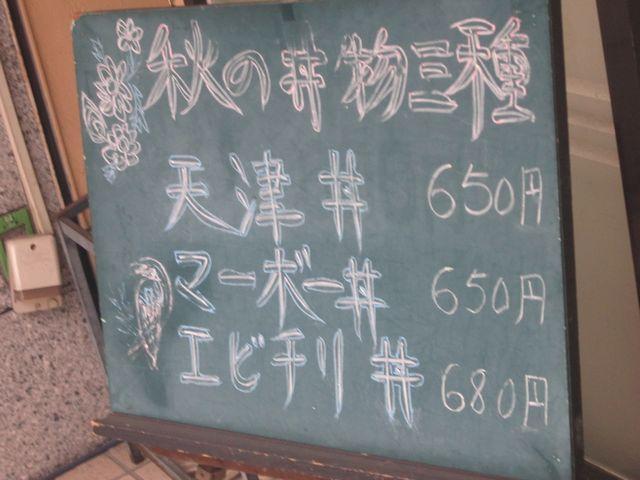 秋の丼物三種
天津丼 650円
マーボー丼 650円
エビチリ丼 680円